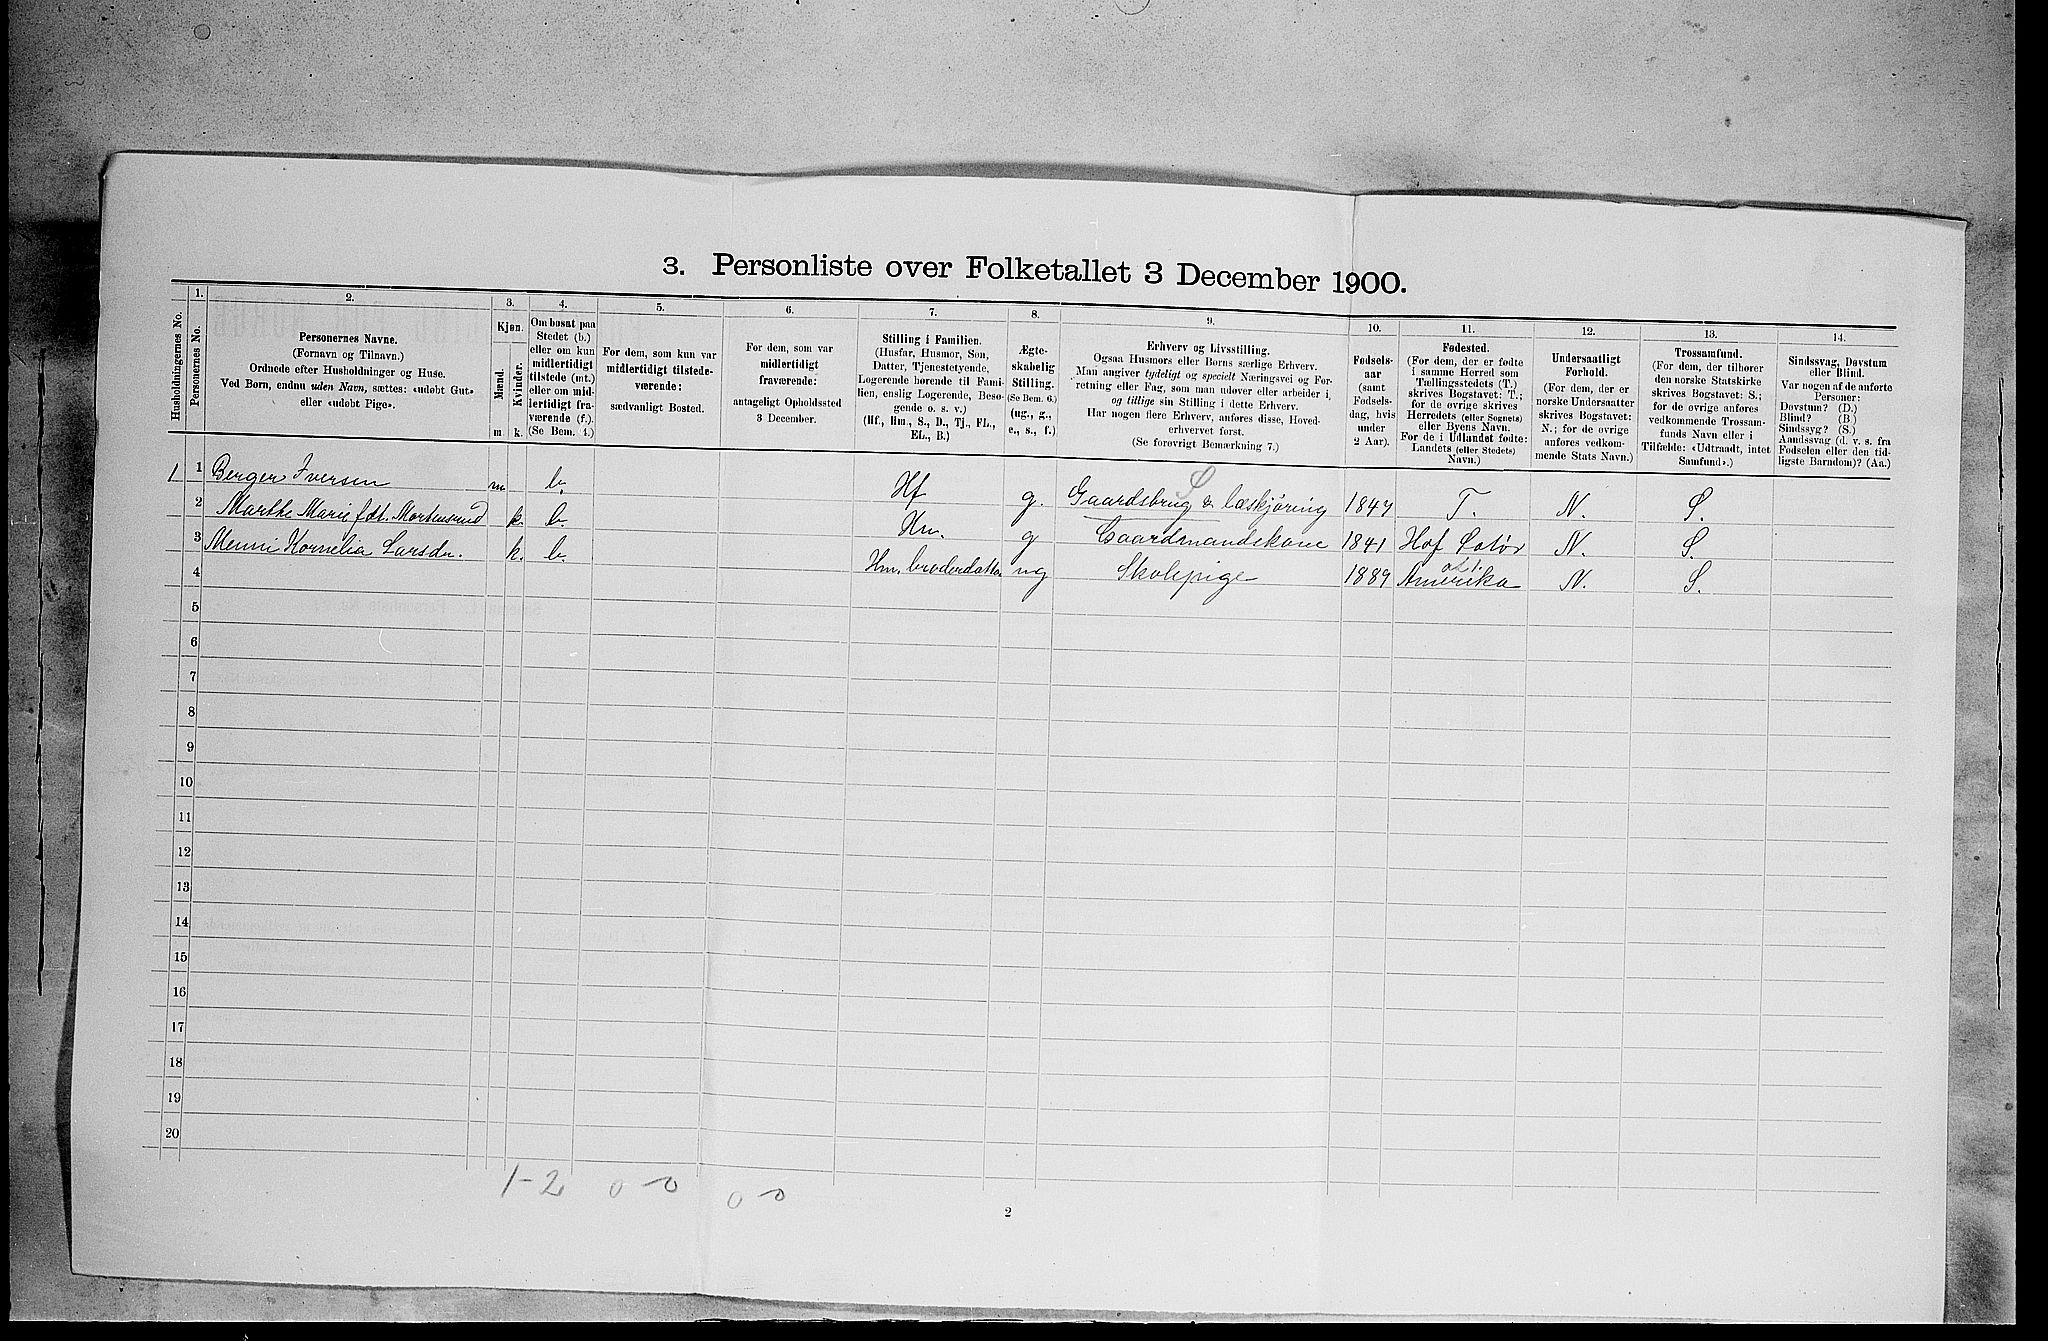 3. Personliste over Folketallet 3 December 1900.
Husholdningernes No.
1.
Personernes No.
2.
Personernes Navne.
(Fornavn og Tilnavn.)
Ordnede efter Husholdninger og Huse.
Ved Børn, endnu uden Navn, sættes: «udøbt Gut»
eller «udøbt Pige».
3.
Kjøn.
Mænd.
Kvinder.
m. k.
4.
Om bosat paa
Stedet (b.)
eller om kun
midlertidigt
tilstede (mt.)
eller om mid-
lertidigt fra-
værende (f.).
(Se Bem. 4.)
5.
For dem, som kun var
midlertidigt tilstede-
værende:
sædvanligt Bosted.
6.
For dem, som var
midlertidigt
fraværende:
antageligt Opholdssted
3 December.
7.
Stilling i Familien.
(Husfar, Husmor, Søn,
Datter, Tjenestetyende,
Logerende hørende til Fami-
lien, enslig Logerende, Besø-
gende o. s. v.)
(Hf., Hm., S., D., Tj., FL.,
EL., B.)
8.
Ægte-
skabelig
Stilling.
(Se Bem. 6.)
(ug., g.,
e., s., f.)
9.
Erhverv og Livsstilling.
Ogsaa Husmors eller Børns særlige Erhverv.
Man angiver tydeligt og specielt Næringsvei og For-
retning eller Fag, som man udøver eller arbeider i,
og tillige sin Stilling i dette Erhverv.
Har nogen flere Erhverv, anføres disse, Hoved-
erhvervet først.
(Se forøvrigt Bemærkning 7.)
10.
Fødsels-
aar
(samt
Fødsels-
dag, hvis
under
2 Aar).
11.
Fødested.
(For dem, der er fødte
i samme Herred som
Tællingsstedets (T.)
skrives Bogstavet: T.;
for de øvrige skrives
Herredets (eller Sognets)
eller Byens Navn.
For de i Udlandet fødte:
Landets (eller Stedets)
Navn.)
12.
Undersaatligt
Forhold.
(For dem, der er
norske Undersaatter
skrives Bogstavet:
N.; for de øvrige
anføres vedkom-
mende Stats Navn.)
13.
Trossamfund.
(For dem, der tilhører
den norske Statskirke
skrives Bogstavet: S.;
for de øvrige anføres
vedkommende Trossam-
funds Navn eller i
Tilfælde: «Udtraadt, intet
Samfund».)
14.
Sindssvag, Døvstum
eller Blind.
Var nogen af de anførte
Personer:
Døvstum? (D.)
Blind? (B.)
Sindssyg? (S.)
Aandssvag (d. v. s. fra
Fødselen eller den tid-
ligste Barndom)? (Aa.)
S
1 1 Berger Iversen m b. Hf g. Gaardsbrug & læskjøring 1847 T. N. S.
2 Marthe Marie fdt. Mortensrud k. b. Hm. g Gaardmandskone 1841 Hof Solør N. S.
3 Menni Kornelia Larsdr. k. b. Hm. broderdatter ug Skolepige 1889 Amerika N. S.
4
5
6
7
8
9
10
11
12
13
14
15
16
17
18
19
20
1-2 0-0 0-0
2